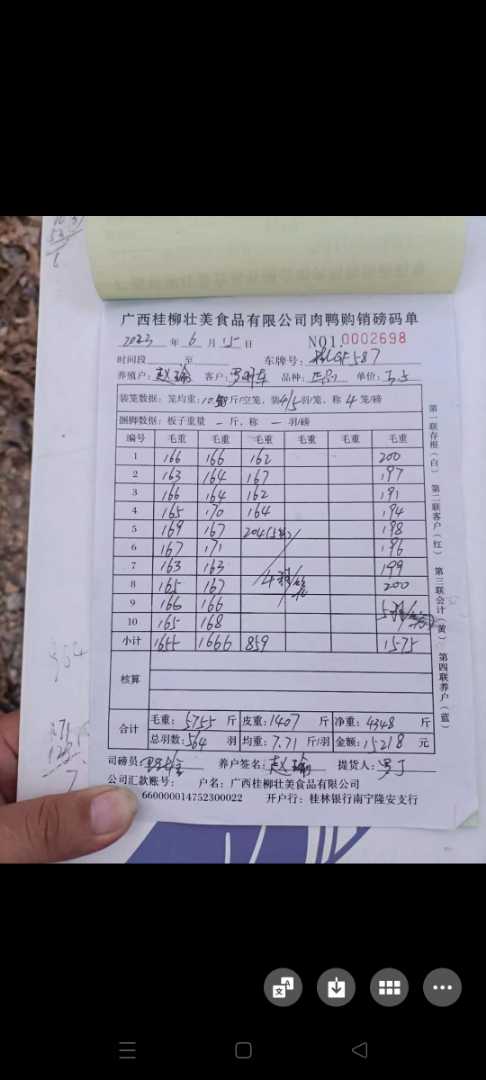 广西桂柳壮美食品有限公司肉鸭购销磅码单
2023 年 6 月 15 日 NO1.0002698
时间段 至 车牌号: GF587
养殖户: 赵瑜 客户: 品种: 单价:
装笼数据: 笼均重: 斤/空笼, 装4/5羽/笼, 称 4 笼/磅
捆脚数据: 板子重量 — 斤, 称 — 羽/磅
编号 毛重 毛重 毛重 毛重 毛重 毛重
1 166 166 162 200
2 163 164 167 197
3 166 164 162 191
4 165 170 164 194
5 169 167 204 198
6 167 171 196
7 163 163 199
8 165 167 4羽/笼 200
9 166 166 5羽/笼
10 165 168
小计 1655 1666 859 1575
核算
合计 毛重: 5755 斤 皮重: 1407 斤 净重: 4348 斤
总羽数: 564 羽 均重: 7.71 斤/羽 金额: 15218 元
司磅员: 养户签名: 赵瑜 提货人:
公司汇款账号: 户名: 广西桂柳壮美食品有限公司
660000014752300022 开户行: 桂林银行南宁隆安支行
第一联存根(白) 第二联客户(红) 第三联会计(黄) 第四联养户(蓝)